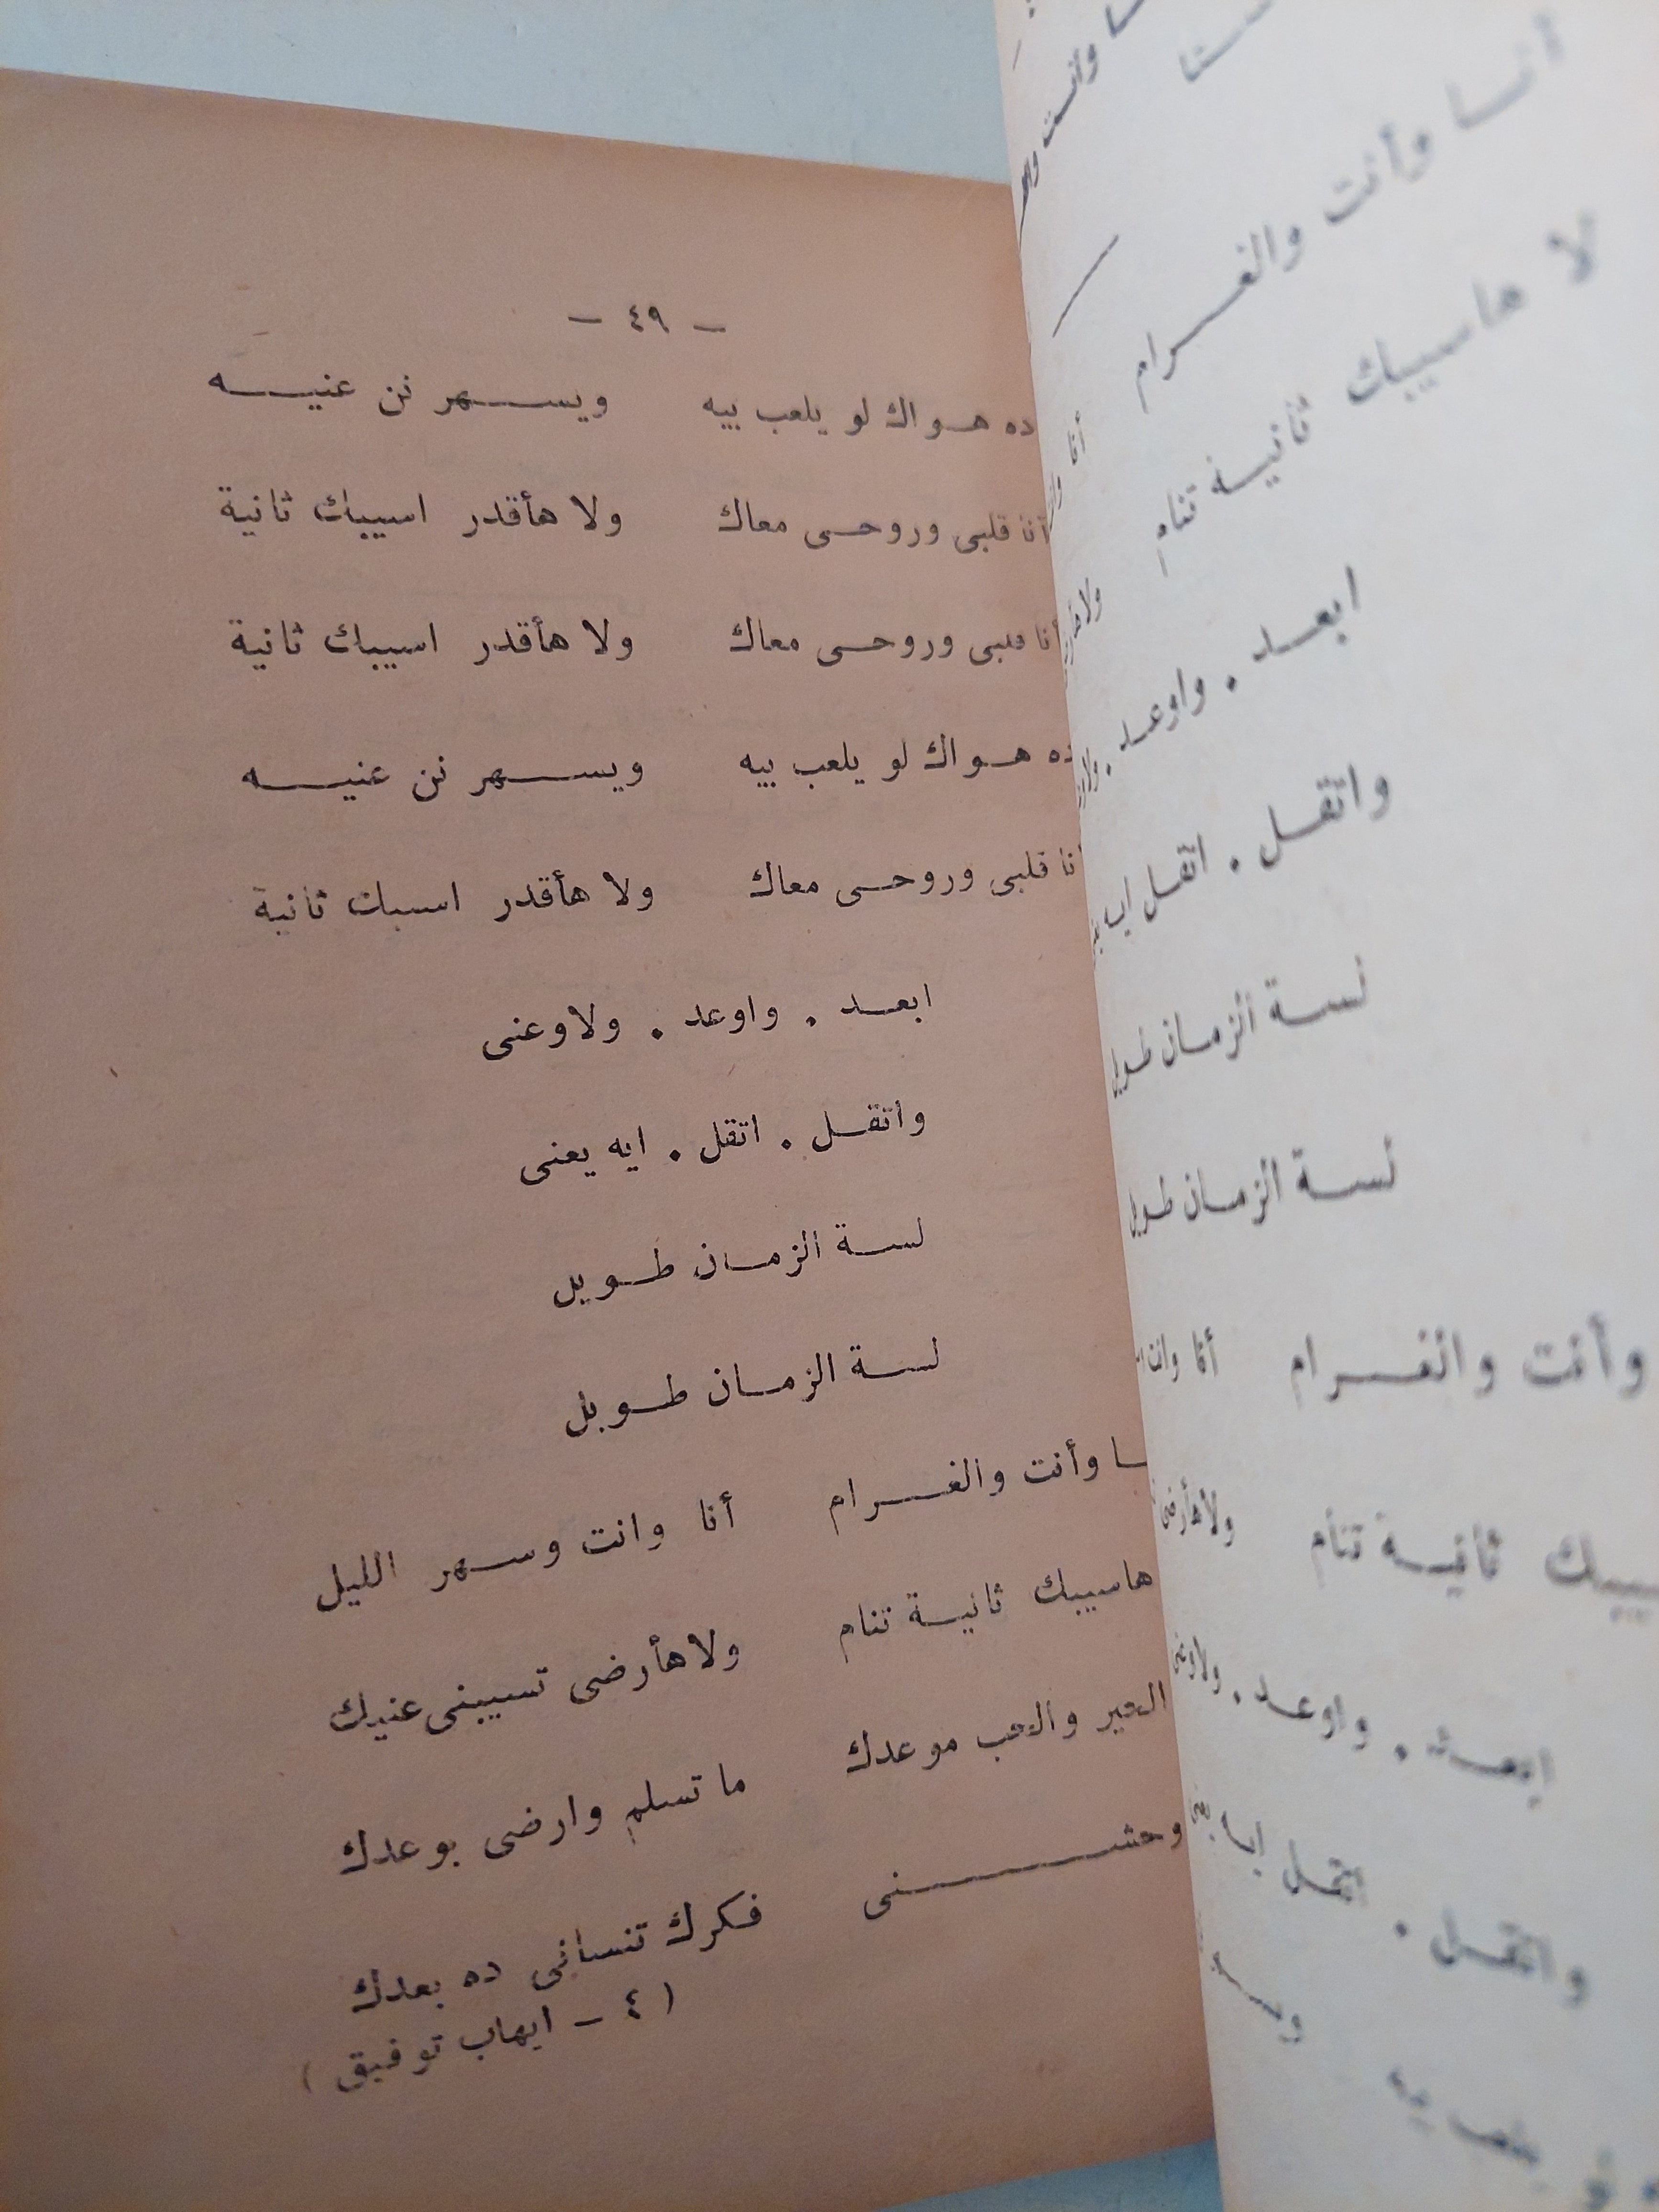 - ٤٩ -
ده هواك لو يلعب بيه ويسهر نن عنيه
أنا قلبى وروحى معاك ولا هأقدر اسيبك ثانية
أنا قلبى وروحى معاك ولا هأقدر اسيبك ثانية
ده هواك لو يلعب بيه ويسهر نن عنيه
أنا قلبى وروحى معاك ولا هأقدر اسيبك ثانية
ابعد . واوعد . ولاوعنى
واتقل . اتقل . ايه يعنى
لسة الزمان طويل
لسة الزمان طويل
وأنت والغرام أنا وانت وسهر الليل
هاسيبك ثانية تنام ولاهأرضى تسيبنى عنيك
الحير والحب موعدك ما تسلم وارضى بوعدك
وحشنى فكرك تنسانى ده بعدك
( ٤ - ايهاب توفيق )
أنا وأنت والغرام
لا هاسيبك ثانية تنام
ابعد . واوعد .
واتقل . اتقل
لسة الزمان طويل
لسة الزمان طويل
وأنت والغرام أنا
ثانية تنام ولاهأرضى
واوعد .
واتقل .